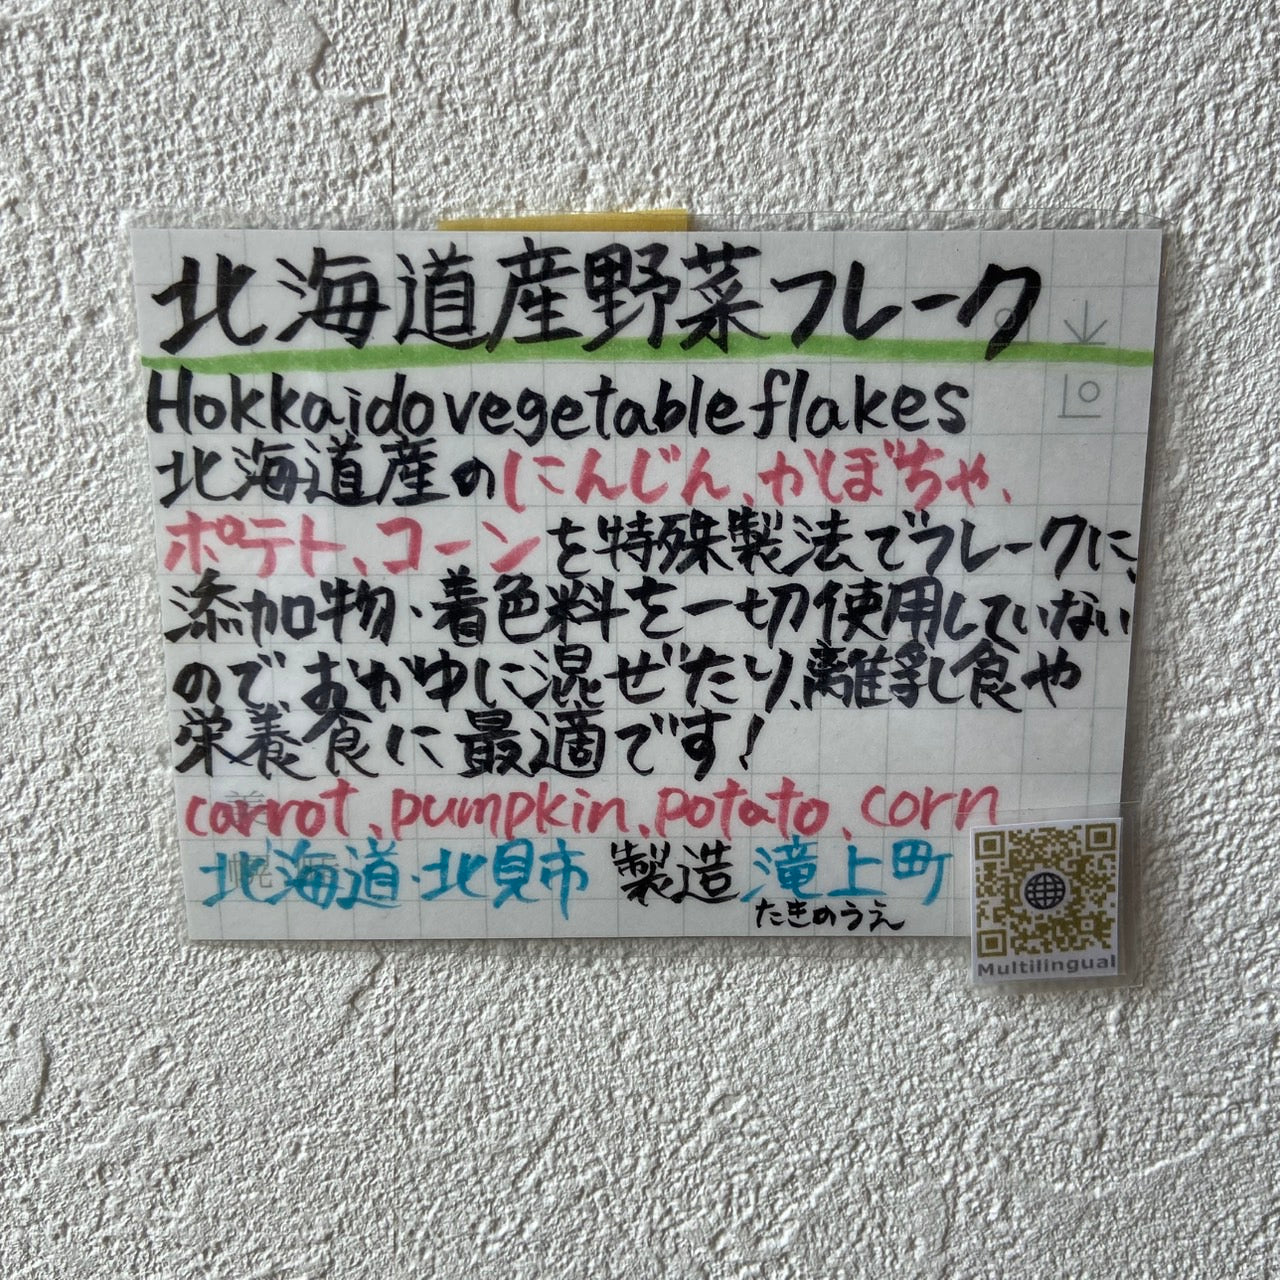 北海道産野菜フレーク
Hokkaido vegetable flakes
北海道産のにんじん、かぼちゃ、
ポテト、コーンを特殊製法でフレークに、
添加物・着色料を一切使用していない
のでおかゆに混ぜたり、離乳食や
栄養食に最適です!
carrot、pumpkin、potato、corn
北海道・北見市 製造 滝上町
たきのうえ
Multilingual